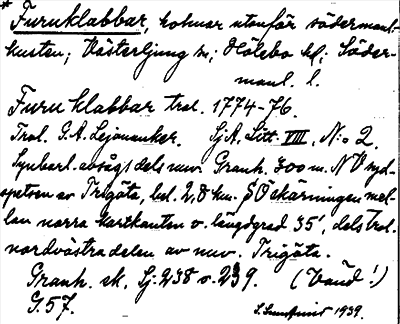 * Furuklabbar, holmar utanför södermanl.
kusten; Västerljung sn; Hölebo hd; Söder-
manl. l.
Furuklabbar trol. 1774-76.
Trol. G.A. Lejonanker. SjA. Litt. VIII, N:o 2.
Synbarl. avsågs dels nuv. Granh. 300 m. NV syd-
spetsen av Trigåta, bel. 2,8 km. SO skärningen mel-
lan norra kartkanten o. längdgrad 35', dels trol.
nordvästra delen av nuv. Trigåta.
Granh. sk. Sj. 238 o. 239. (Vänd!)
G. 57.
1939.